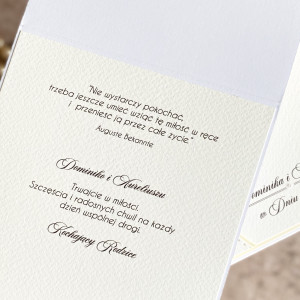 "Nie wystarczy pokochać,
trzeba jeszcze umieć wziąć tę miłość w ręce
i przenieść ją przez całe życie."
Auguste Bekannte
Dominika i Aureliuszu
Trwajcie w miłości.
Szczęścia i radosnych chwil na każdy
dzień wspólnej drogi.
Kochający Rodzice
ominika i
Dniu